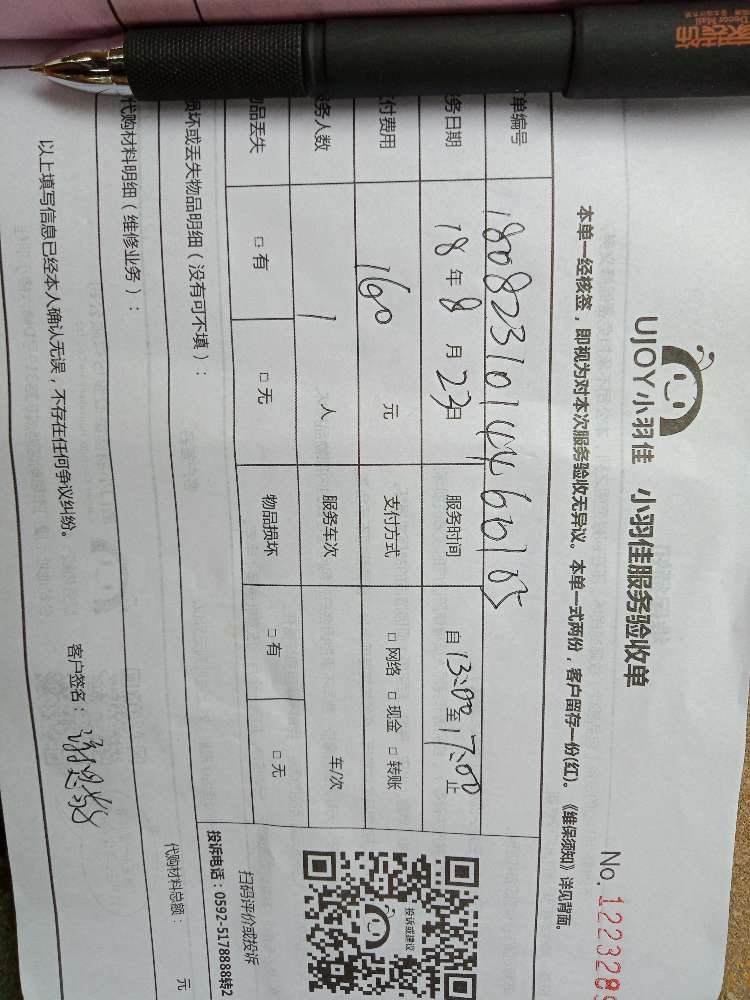 UJOY小羽佳 小羽佳服务验收单
No. 1223289
本单一经核签，即视为对本次服务验收无异议。本单一式两份，客户留存一份(红)。《维保须知》详见背面。
单编号 180823101444660105
务日期 18年8月23日 服务时间 自13:00至17:00止
付费用 160 元 支付方式 □网络 □现金 □转账
务人数 1 人 服务车次 车/次
品丢失 □有 □无 物品损坏 □有 □无
损坏或丢失物品明细（没有可不填）：
代购材料明细（维修业务）：
代购材料总额： 元
以上填写信息已经本人确认无误，不存在任何争议纠纷。 客户签名：
投诉或建议
扫码评价或投诉
投诉电话：0592-5178888转2